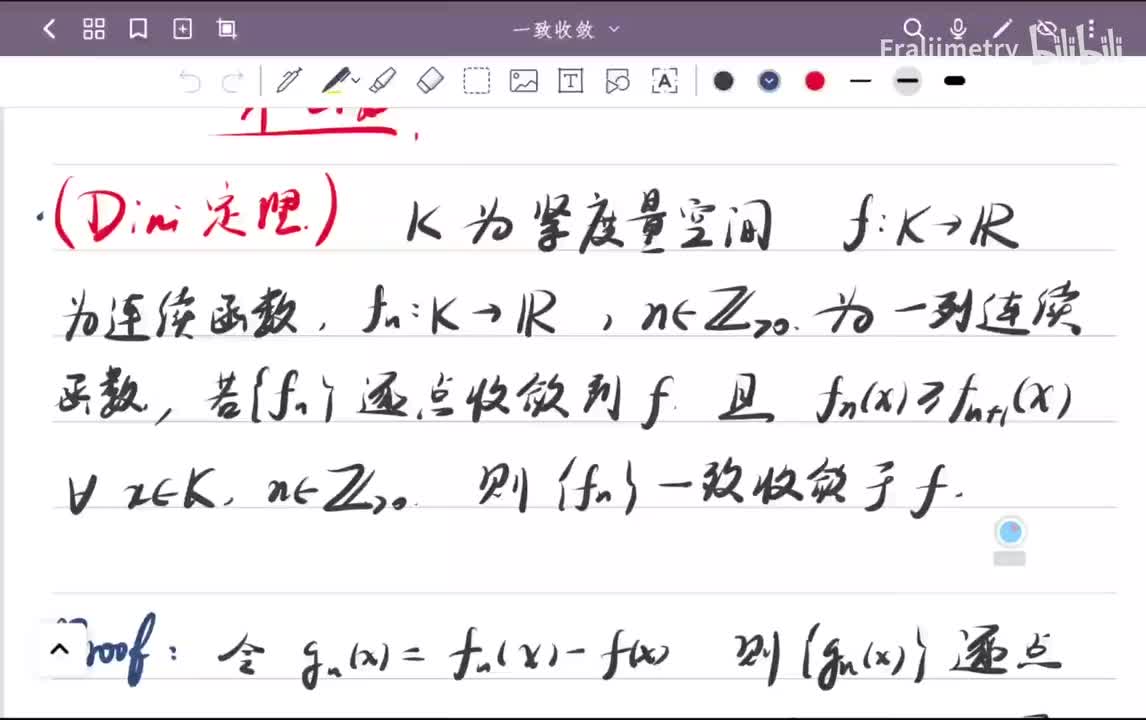 一致收敛
Fraljimetry bilibili
(Dini 定理.) K 为紧度量空间 f:K→ℝ
为连续函数, fₙ:K→ℝ, n∈ℤ>₀. 为一列连续
函数, 若{fₙ}逐点收敛到 f. 且 fₙ(x)≥fₙ₊₁(x)
∀ x∈K, n∈ℤ>₀. 则{fₙ}一致收敛于 f.
Proof: 令 gₙ(x)= fₙ(x)-f(x) 则{gₙ(x)}逐点